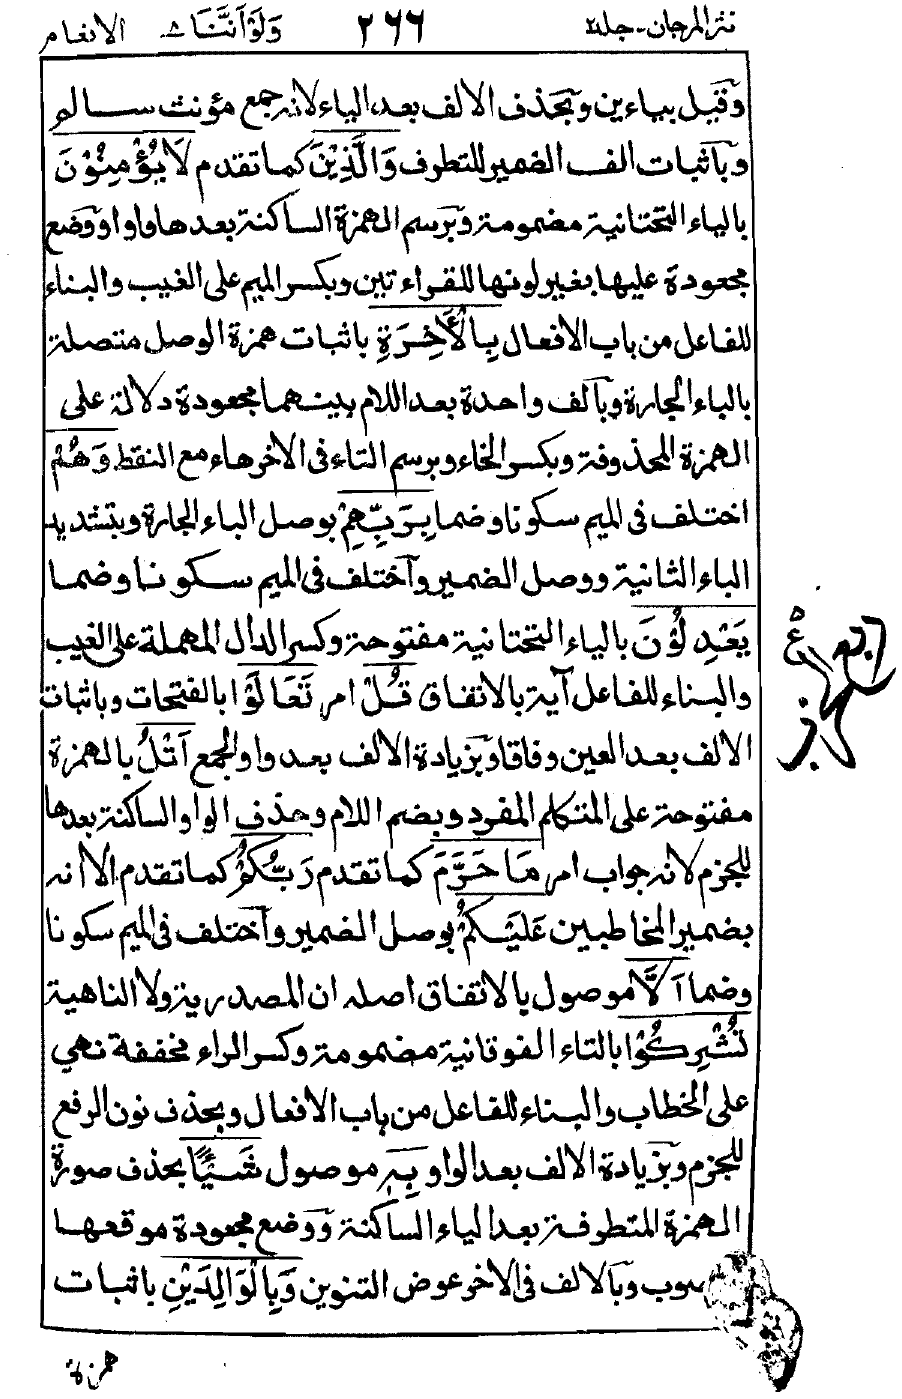 نثر المرجان - جلد ٢ ٢٦٦ وَلَوْ أَنَّنَا ٨ الانعام
وقيل بياءين وبحذف الالف بعد الياء لانه جمع مؤنث سالم
وباثبات الف الضمير للتطرف وَالَّذِيْنَ كما تقدم لَا يُؤْمِنُوْنَ
بالياء التحتانية مضمومة وبرسم الهمزة الساكنة بعدها واوا ووضع
مجعودة عليها بغير لونها للقراءتين وبكسر الميم على الغيب والبناء
للفاعل من باب الافعال بِالْاٰخِرَةِ باثبات همزة الوصل متصلة
بالباء الجارة وبالف واحدة بعد اللام بينهما مجعودة دلالة على
الهمزة المحذوفة وبكسر الخاء وبرسم التاء فى الاخرهاء مع النقط وَهُمْ
اختلف فى الميم سكونا وضما بِرَبِّهِمْ بوصل الباء الجارة وبتشديد
الباء الثانية ووصل الضمير واختلف فى الميم سكونا وضما
يَعْدِلُوْنَ بالياء التحتانية مفتوحة وكسر الدال المهملة على الغيب
والبناء للفاعل آية بالاتفاق قُلْ امر تَعَالَوْا بالفتحات وباثبات
الالف بعد العين وفاقا وبزيادة الالف بعد واو الجمع اَتْلُ بالهمزة
مفتوحة على المتكلم المفرد وبضم اللام وحذف الواو الساكنة بعدها
للجزم لانه جواب امر مَا حَرَّمَ كما تقدم رَبُّكُمْ كما تقدم الا انه
بضمير المخاطبين عَلَيْكُمْ بوصل الضمير واختلف فى الميم سكونا
وضما اَلَّا موصول بالاتفاق اصله ان المصدرية ولا الناهية
تُشْرِكُوْا بالتاء الفوقانية مضمومة وكسر الراء مخففة نهي
على الخطاب والبناء للفاعل من باب الافعال وبحذف نون الرفع
للجزم وبزيادة الالف بعد الواو بِهٖ موصول شَيْـًٔا بحذف صورة
الهمزة المتطرفة بعد الياء الساكنة ووضع مجعودة موقعها
وبالالف فى الاخر عوض التنوين وَبِالْوَالِدَيْنِ باثبات
همزة